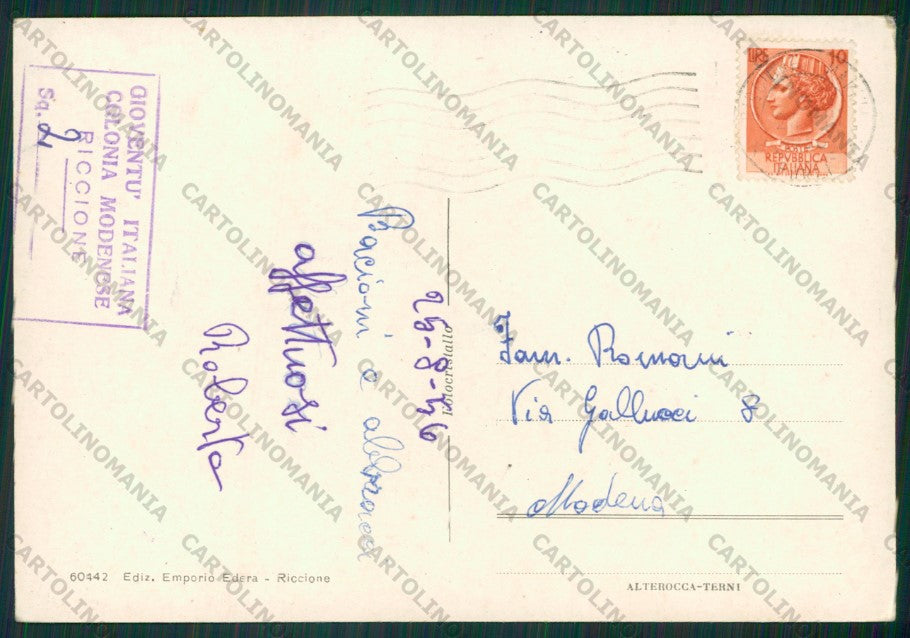 GIOVENTU' ITALIANA
COLONIA MODENESE
RICCIONE
Sq. 2
25-8-56
Bacioni e abbracci
affettuosi
Roberta
Fotocristallo
LIRE 10
POSTE
REPVBBLICA
ITALIANA
Fam. Romani
Via Gallucci 8
Modena
60442 Ediz. Emporio Edera - Riccione
ALTEROCCA-TERNI
CARTOLINOMANIA